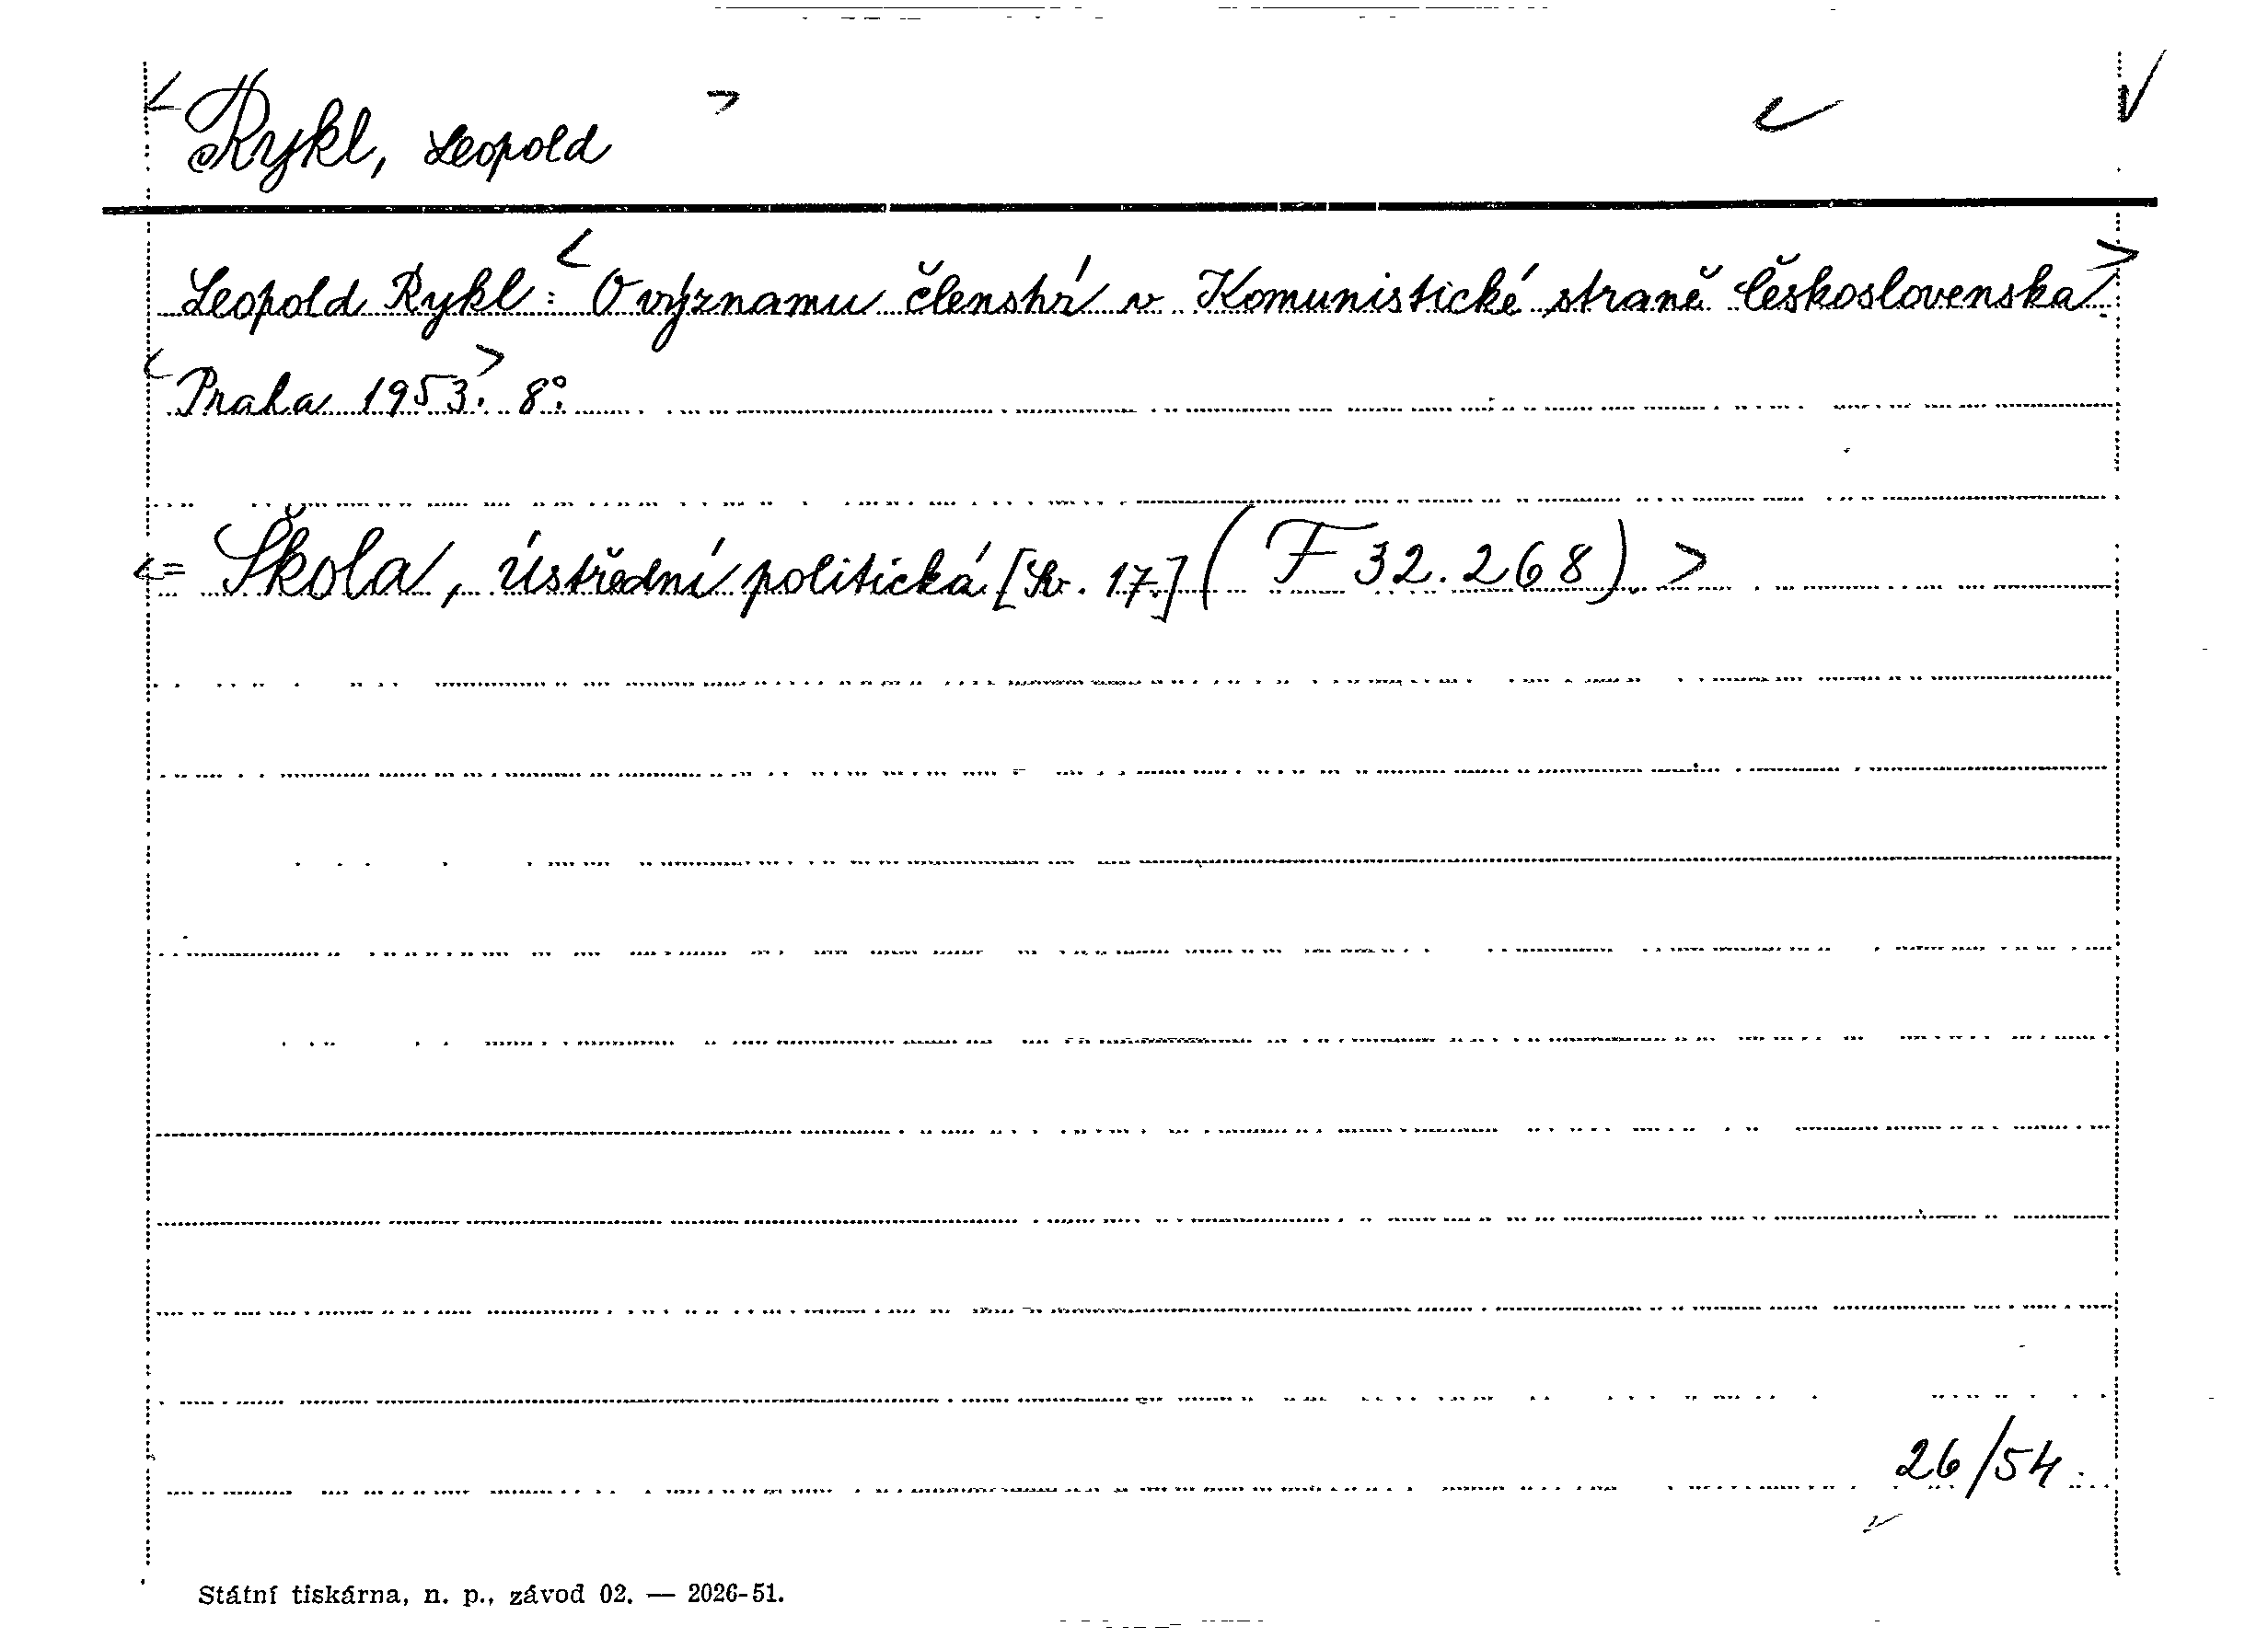 < Rykl, Leopold >
Leopold Rykl: <O významu členství v Komunistické straně Československa>.
<Praha 1953.> 8°.
<= Škola, ústřední politická [Sv. 17.] (F 32.268). >
26/54.
Státní tiskárna, n. p., závod 02. — 2026-51.